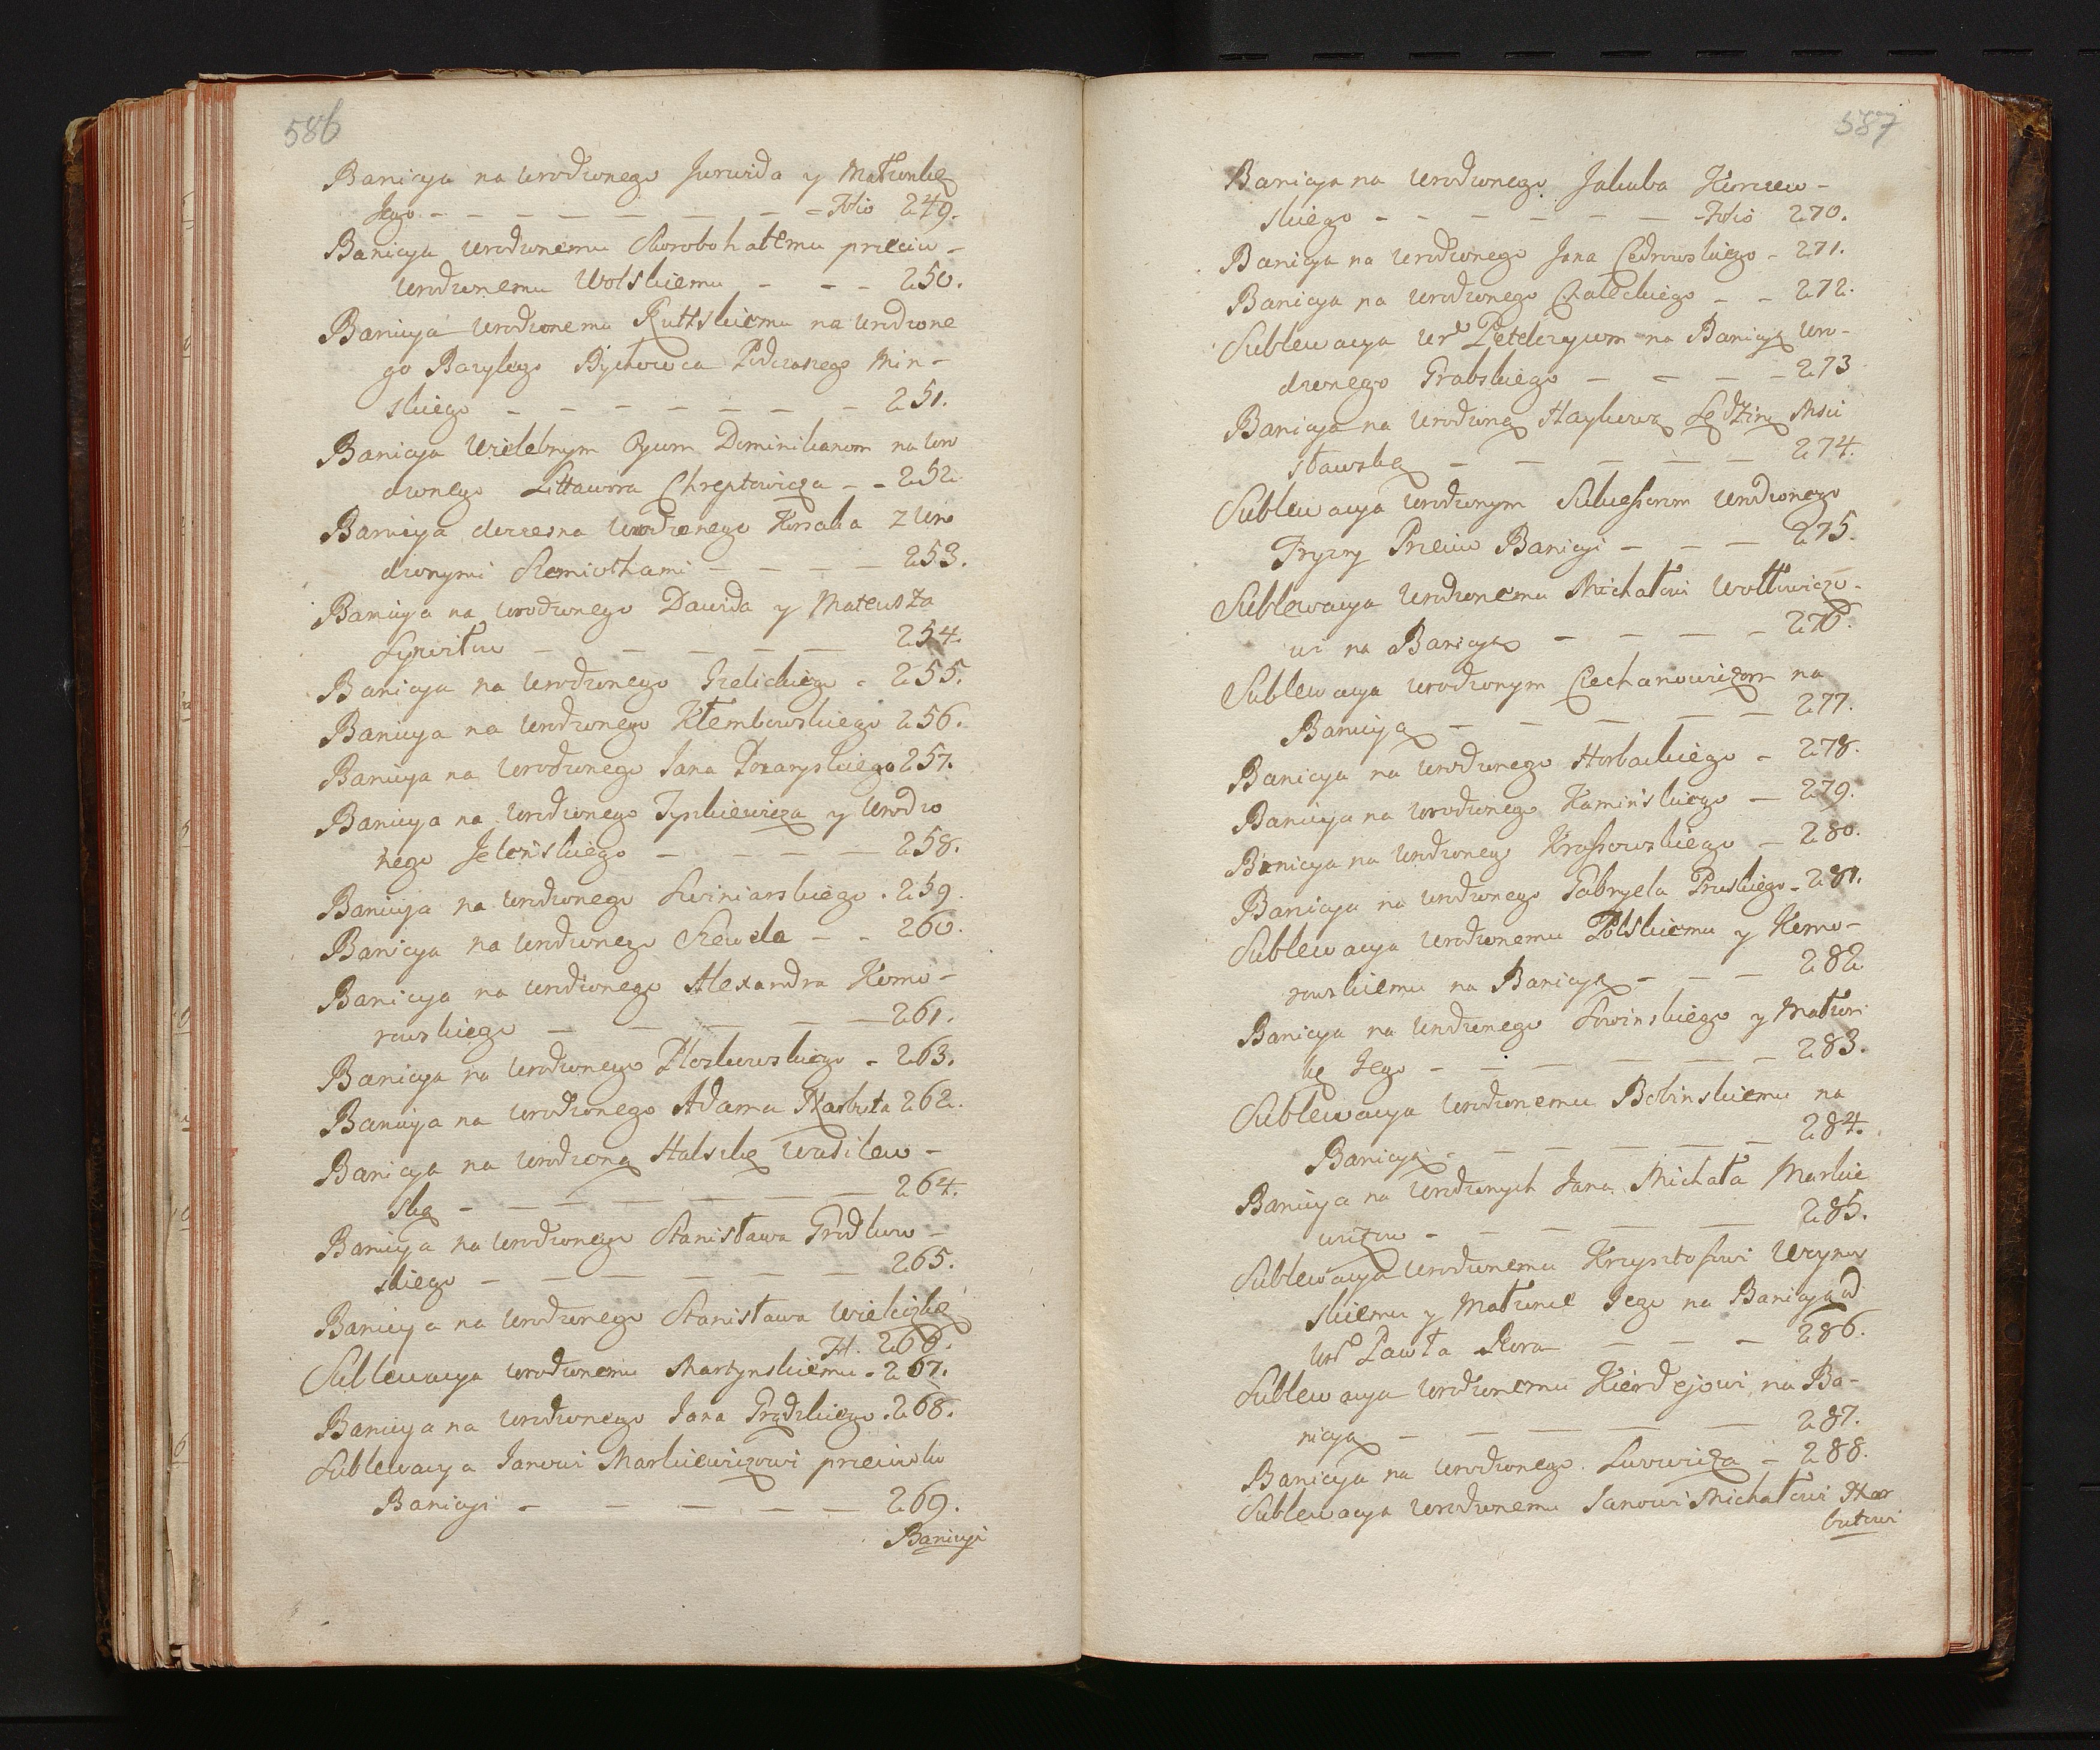 586
Banicya na Urodzonego Jurwida y Małżonkę
Jego - - - - - - - - Folio 249.
Banicya Urodzonemu Skorobohatemu przeciw -
Urodzonemu Wolskiemu - - - 250.
Banicya Urodzonemu Ruttskiemu na Urodzone
go Bazylego Bychowca Podczaszego Min -
skiego - - - - - - - 251.
Banicya Wielebnym Oycom Dominikanom na Uro
dzonego Littawora Chreptowicza - - 252
Banicya doczesna Urodzonego Korsaka z Uro
dzonymi Skemiothami - - - - 253.
Banicya na Urodzonego Dawida y Mateusza
- - - - - 254.
Banicya na Urodzonego Grelickiego - 255.
Banicya na Urodzonego Kłembowskiego 256.
Banicya na Urodzonego Jana Pożaryskiego 257.
Banicya na Urodzonego Tyszkiewicza y Urodzo
nego Jeleńskiego - - - - 258.
Banicya na Urodzonego Swiniarskiego . 259.
Banicya na Urodzonego Szewela - - 260.
Banicya na Urodzonego Alexandra Komo -
rowskiego - - - - - 261.
Banicya na Urodzonego Płoskowskiego - 263.
Banicya na Urodzonego Adama Narbuta 262.
Banicya na Urodzoną Halszkę Wasilew -
ską - - - - - - - 264.
Banicya na Urodzonego Stanisława Grodkow -
skiego - - - - - - - 265.
Banicya na Urodzonego Stanisława Wieliczkę
Fol. 266.
Sublewacya Urodzonemu Martynskiemu - 267.
Banicya na Urodzonego Jana Grądzkiego . 268.
Sublewacya Janowi Markiewiczowi przeciwko
Banicyi - - - - - - 269.
Banicyi
587
Banicya na Urodzonego Jakuba Kunczew -
skiego - - - - - - - Folio 270.
Banicya na Urodzonego Jana Cedrowskiego - 271.
Banicya na Urodzonego Chaleckiego - - 272.
Sublewacya Ur. Petelczycom na Banicyą Uro -
dzonego Grabskiego - - - - 273
Banicya na Urodzoną Haykową Sędzinę Mści
sławską - - - - - 274.
Sublewacya Urodzonym Sukcessorom Urodzonego
Fryzy Przeciw Banicyi - - - 275.
Sublewacya Urodzonemu Michałowi Wołłowiczo -
wi na Banicyą - - - - 276.
Sublewacya Urodzonym Ciechanowiczom na
Banicyą - - - - - 277.
Banicya na Urodzonego Horbackiego - 278.
Banicya na Urodzonego Kamińskiego - 279.
Banicya na Urodzonego Krassowskiego - 280.
Banicya na Urodzonego Gabryela Pruskiego - 281.
Sublewacya Urodzonemu Polskiemu y Komo -
rowskiemu na Banicyą - - - 282
Banicya na Urodzonego Sowinskiego y Małżon
kę Jego - - - - - - 283.
Sublewacya Urodzonemu Bobinskiemu na
Banicyą - - - - - - 284.
Banicya na Urodzonych Jana Michała Markie
wiczow - - - - - 285.
Sublewacya Urodzonemu Krzysztofowi Uzyn
skiemu y Małżonce Jego na Banicyą od
Urd. Pawła Skora - - - 286.
Sublewacya Urodzonemu Kierdejowi na Ba -
nicyą - - - - - - 287.
Banicya na Urodzonego Surowicza - 288.
Sublewacya Urodzonemu Janowi Michałowi Nar
butowi